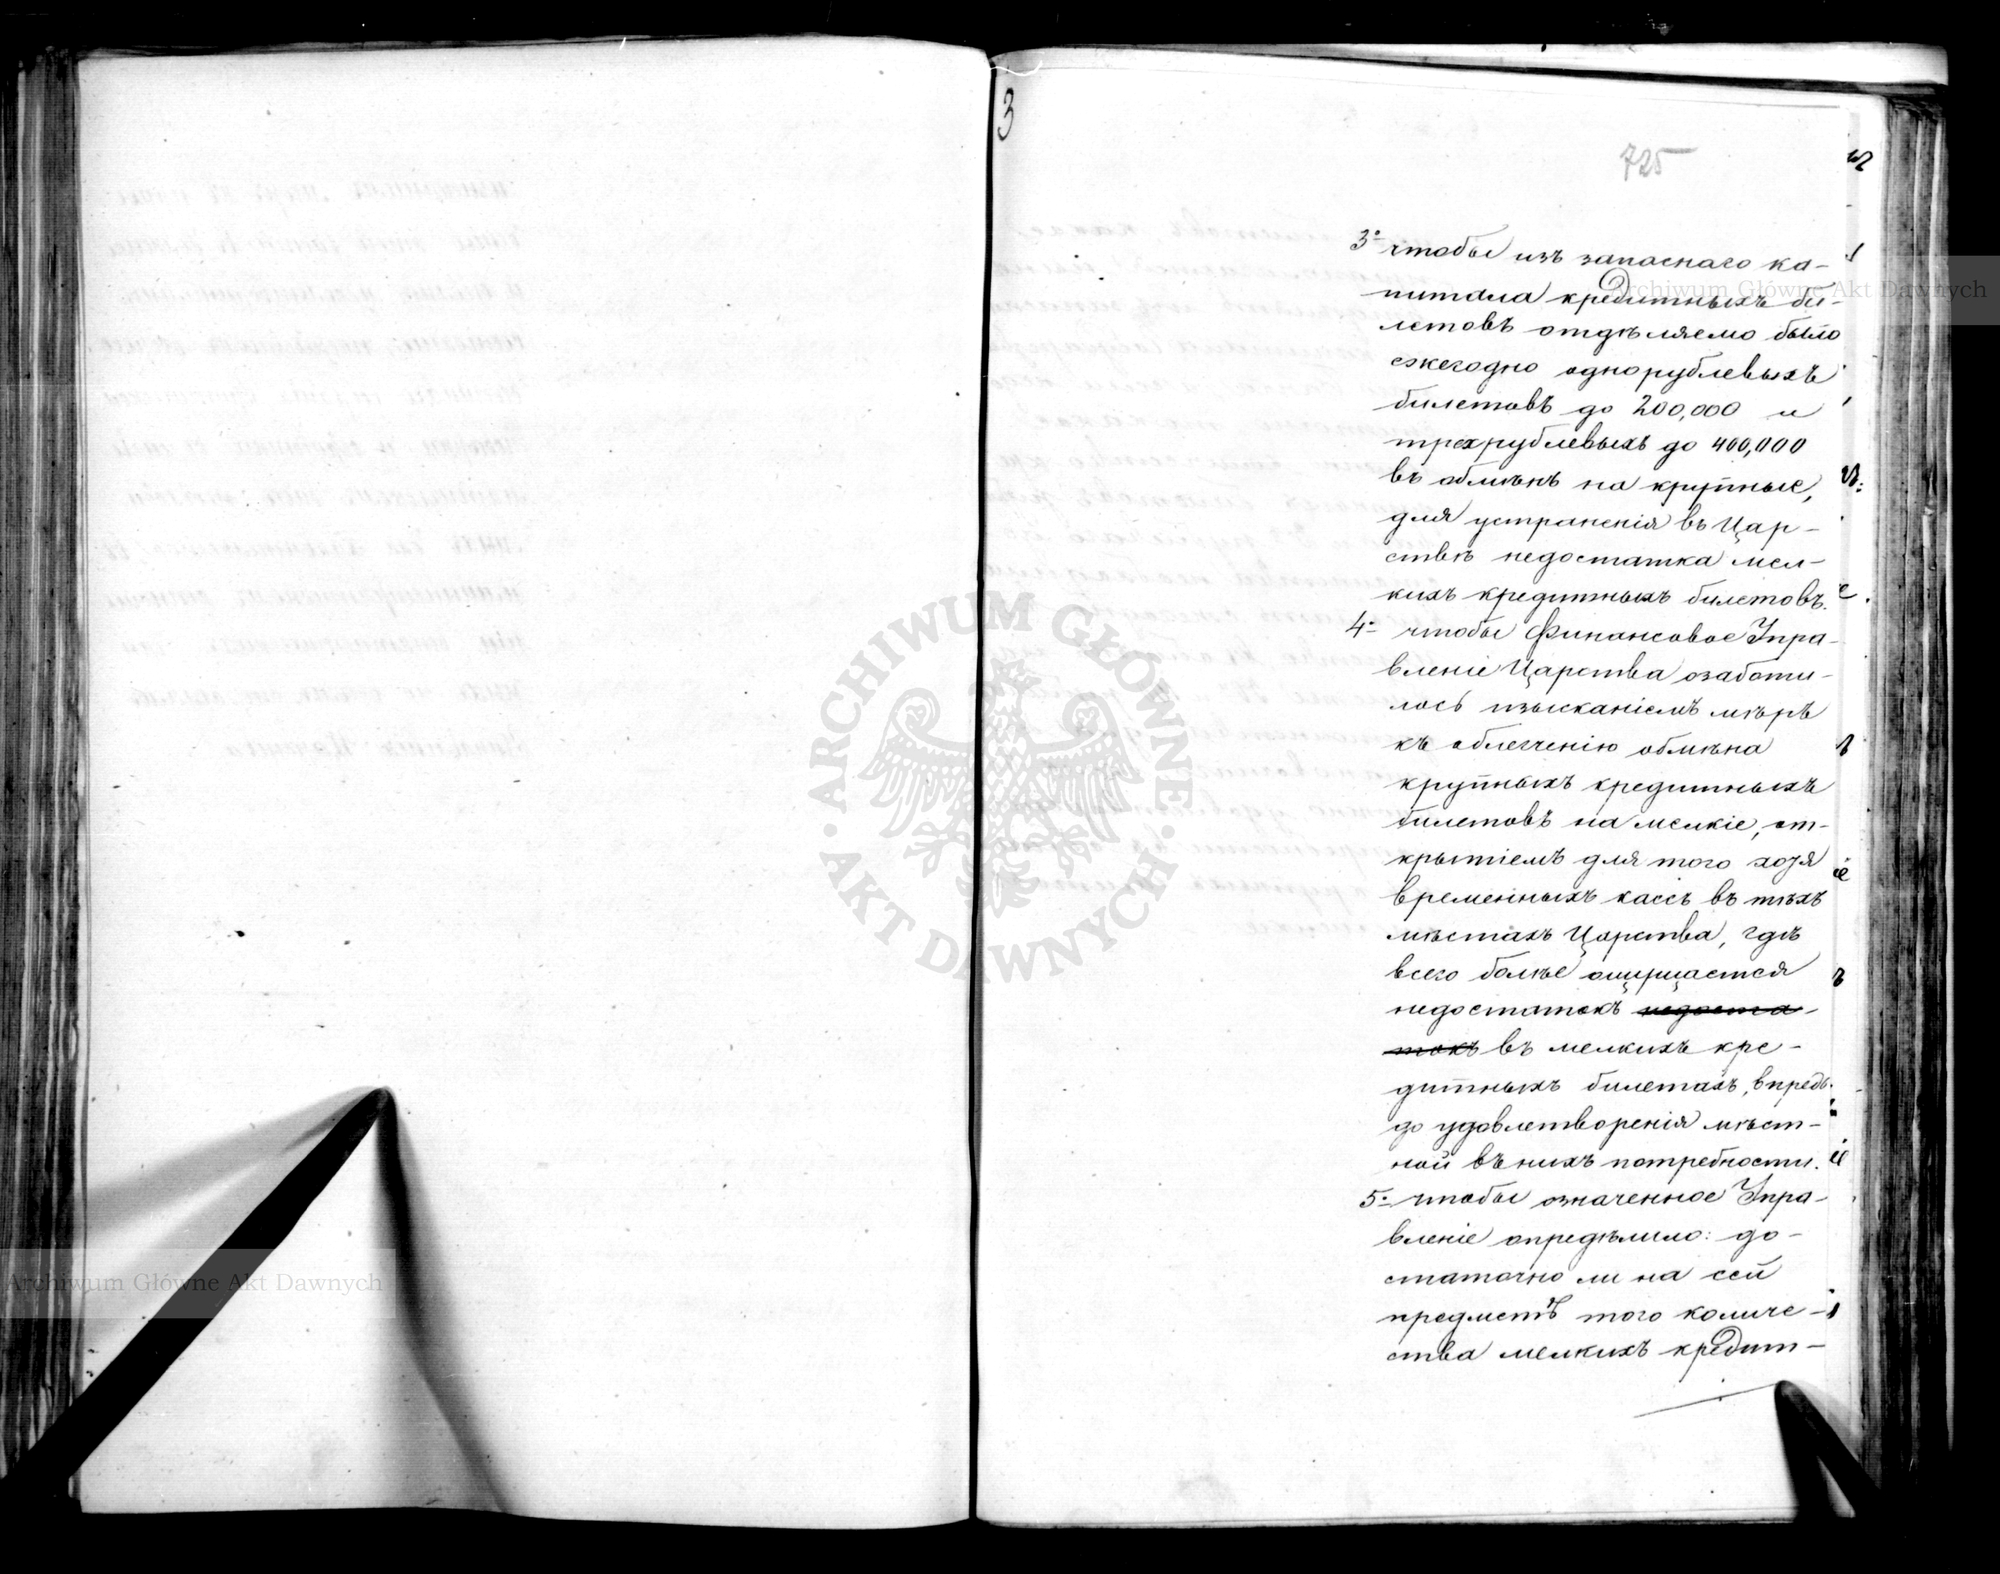 3
725
3º чтобы изъ запаснаго ка-
питала кредитныхъ би-
летовъ отдѣляемо было
ежегодно однорублевыхъ
билетовъ до 200,000 и
трехрублевыхъ до 400,000
въ обмѣнъ на крупные,
для устраненія въ Цар-
ствѣ недостатка мел-
кихъ кредитныхъ билетовъ.
4º чтобы Финансовое Упра-
вленіе Царства озаботи-
лось изысканіемъ мѣръ
къ облегченію обмѣна
крупныхъ кредитныхъ
билетовъ на мелкіе, от-
крытіемъ для того хотя
временныхъ кассъ въ тѣхъ
мѣстахъ Царства, гдѣ
всего болѣе ощущается
недостатокъ недоста-
токъ въ мелкихъ кре-
дитныхъ билетахъ, впредь
до удовлетворенія мѣст-
ной въ нихъ потребности.
5º чтобы означенное Упра-
вленіе опредѣлило: до-
статочно ли на сей
предметъ того количе-
ства мелкихъ кредит-
ARCHIWUM GŁÓWNE
AKT DAWNYCH
Archiwum Główne Akt Dawnych
Archiwum Główne Akt Dawnych